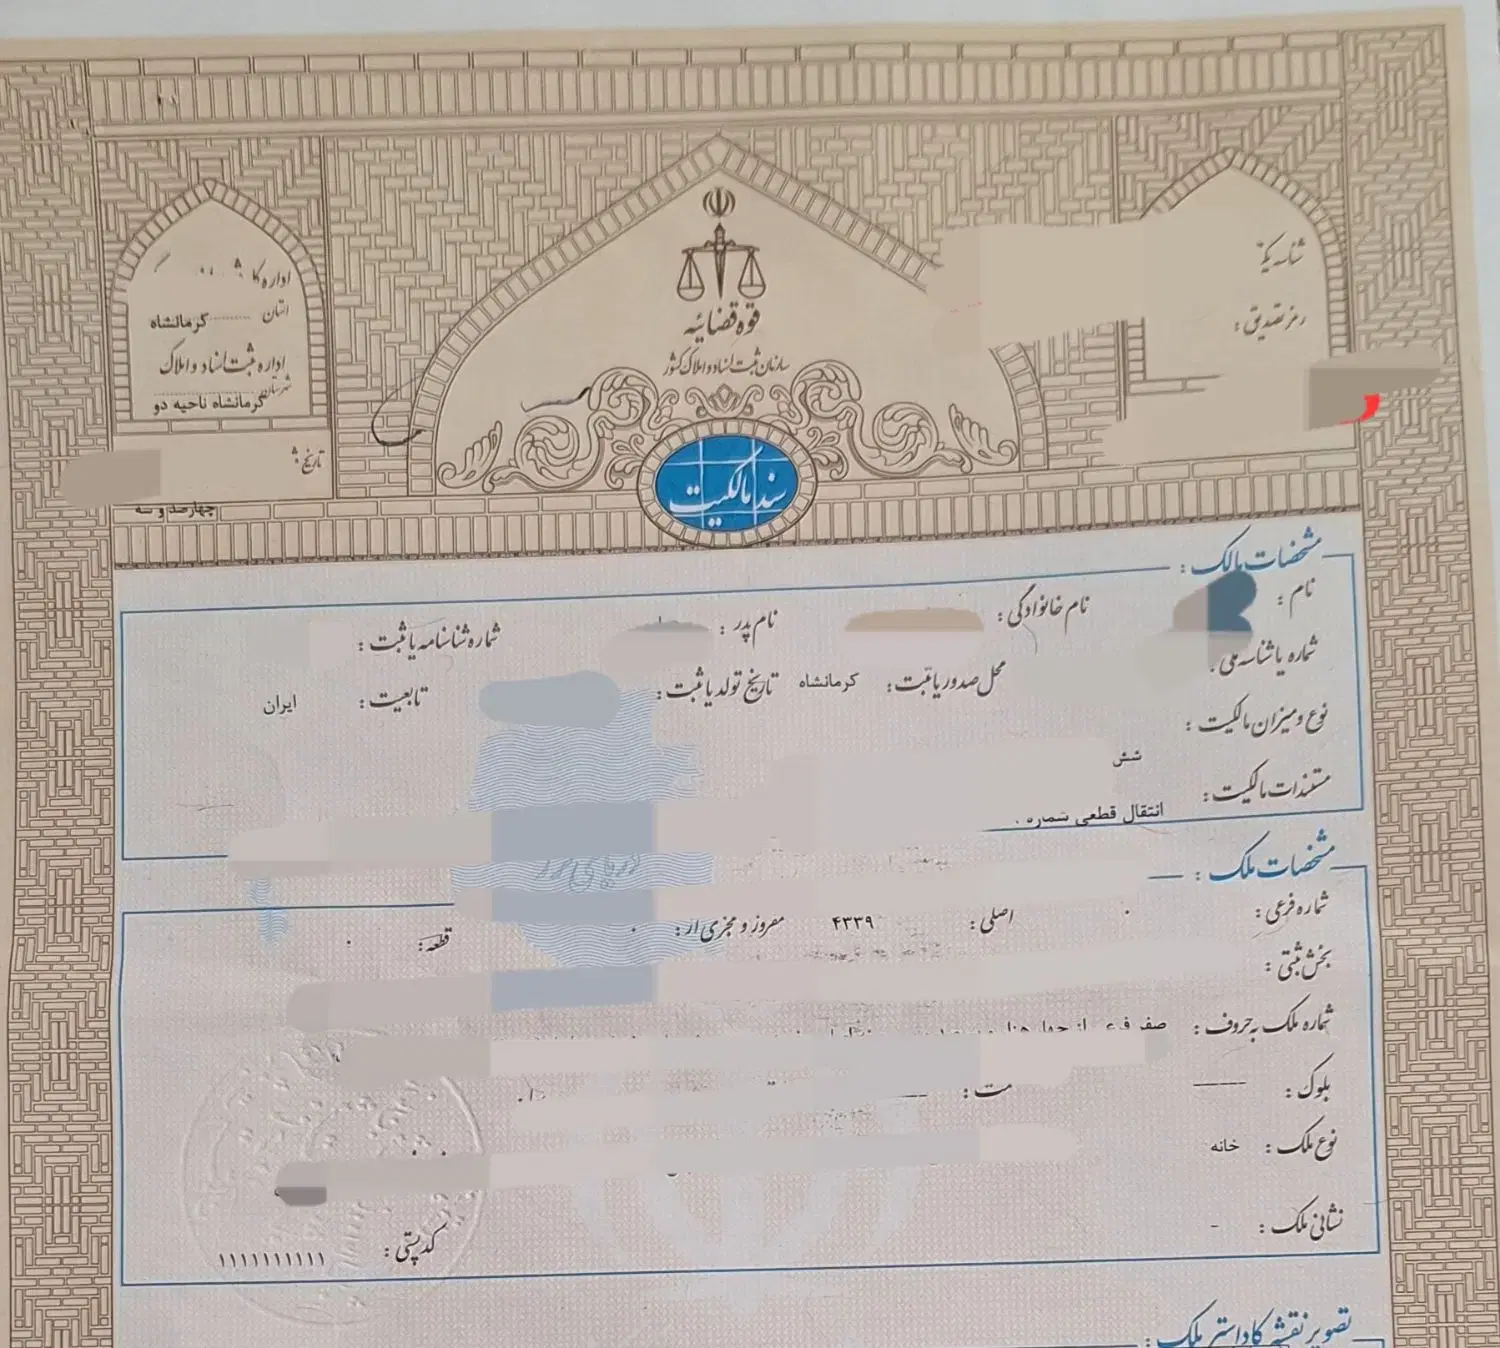 قوه قضائیه
سازمان ثبت اسناد و املاک کشور
سند مالکیت
شناسه یکتا
رمز تصدیق :
استان کرمانشاه
اداره ثبت اسناد و املاک
شهرستان کرمانشاه ناحیه دو
تاریخ :
چهارصد و سه
مشخصات مالک :
نام : نام خانوادگی : نام پدر : شماره شناسنامه یا ثبت :
شماره یا شناسه ملی : محل صدور یا ثبت : کرمانشاه تاریخ تولد یا ثبت : تابعیت : ایران
نوع و میزان مالکیت :
شش
مستندات مالکیت :
انتقال قطعی شماره
مشخصات ملک :
شماره فرعی : ۰ اصلی : ۴۳۳۹ مفروز و مجزی از : ۰ قطعه : ۰
بخش ثبتی :
شماره ملک به حروف : صفر فرعی از چهار هزار
بلوک :
نوع ملک : خانه
نشانی ملک : -
کدپستی : ۱۱۱۱۱۱۱۱۱۱
تصویر نقشه کاداستر ملک :